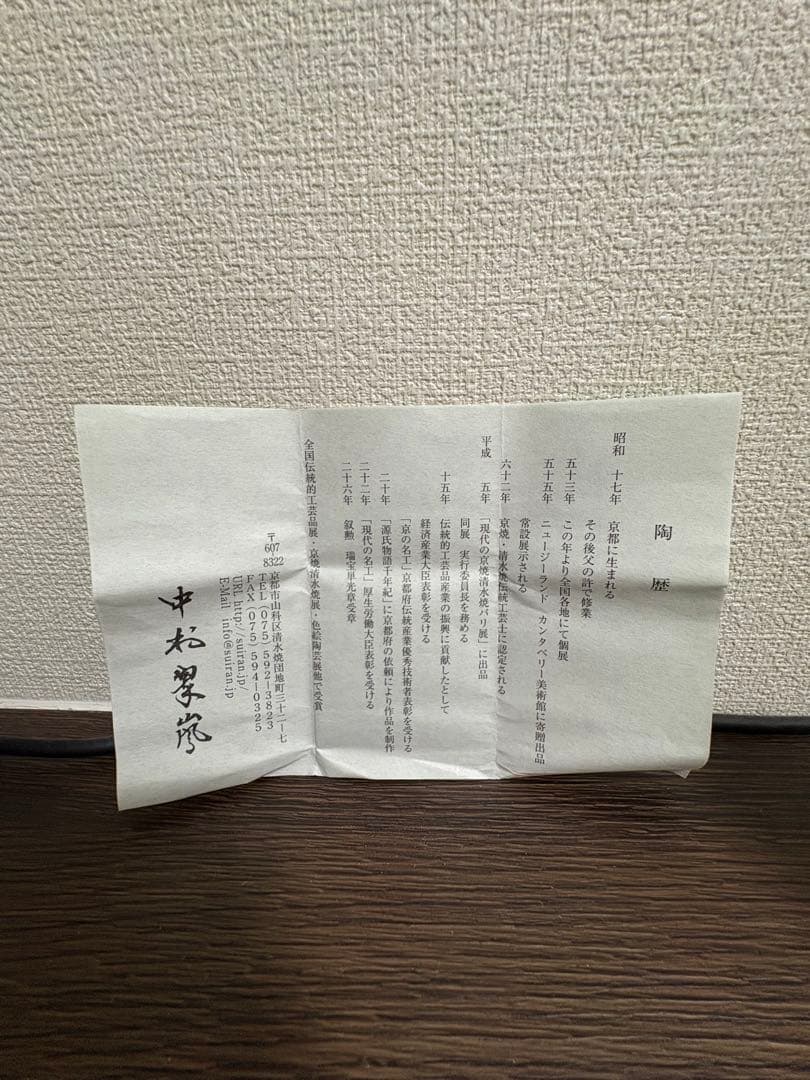 陶歴
昭和 十七年 京都に生まれる
その後父の許で修業
五十三年 この年より全国各地にて個展
五十五年 ニュージーランド カンタベリー美術館に寄贈出品
常設展示される
六十二年 京焼・清水焼伝統工芸士に認定される
平成 五年 「現代の京焼清水焼パリ展」に出品
同展 実行委員長を務める
十五年 伝統的工芸品産業の振興に貢献したとして
経済産業大臣表彰を受ける
「京の名工」京都府伝統産業優秀技術者表彰を受ける
二十年 「源氏物語千年紀」に京都府の依頼により作品を制作
二十二年 「現代の名工」厚生労働大臣表彰を受ける
二十六年 叙勲 瑞宝単光章受章
全国伝統的工芸品展・京焼清水焼展・色絵陶芸展他で受賞
〒607-8322 京都市山科区清水焼団地町三十二ー七
TEL(075)592-3823
FAX(075)594-0325
URL http://suiran.jp/
E-Mail info@suiran.jp
中村翠嵐